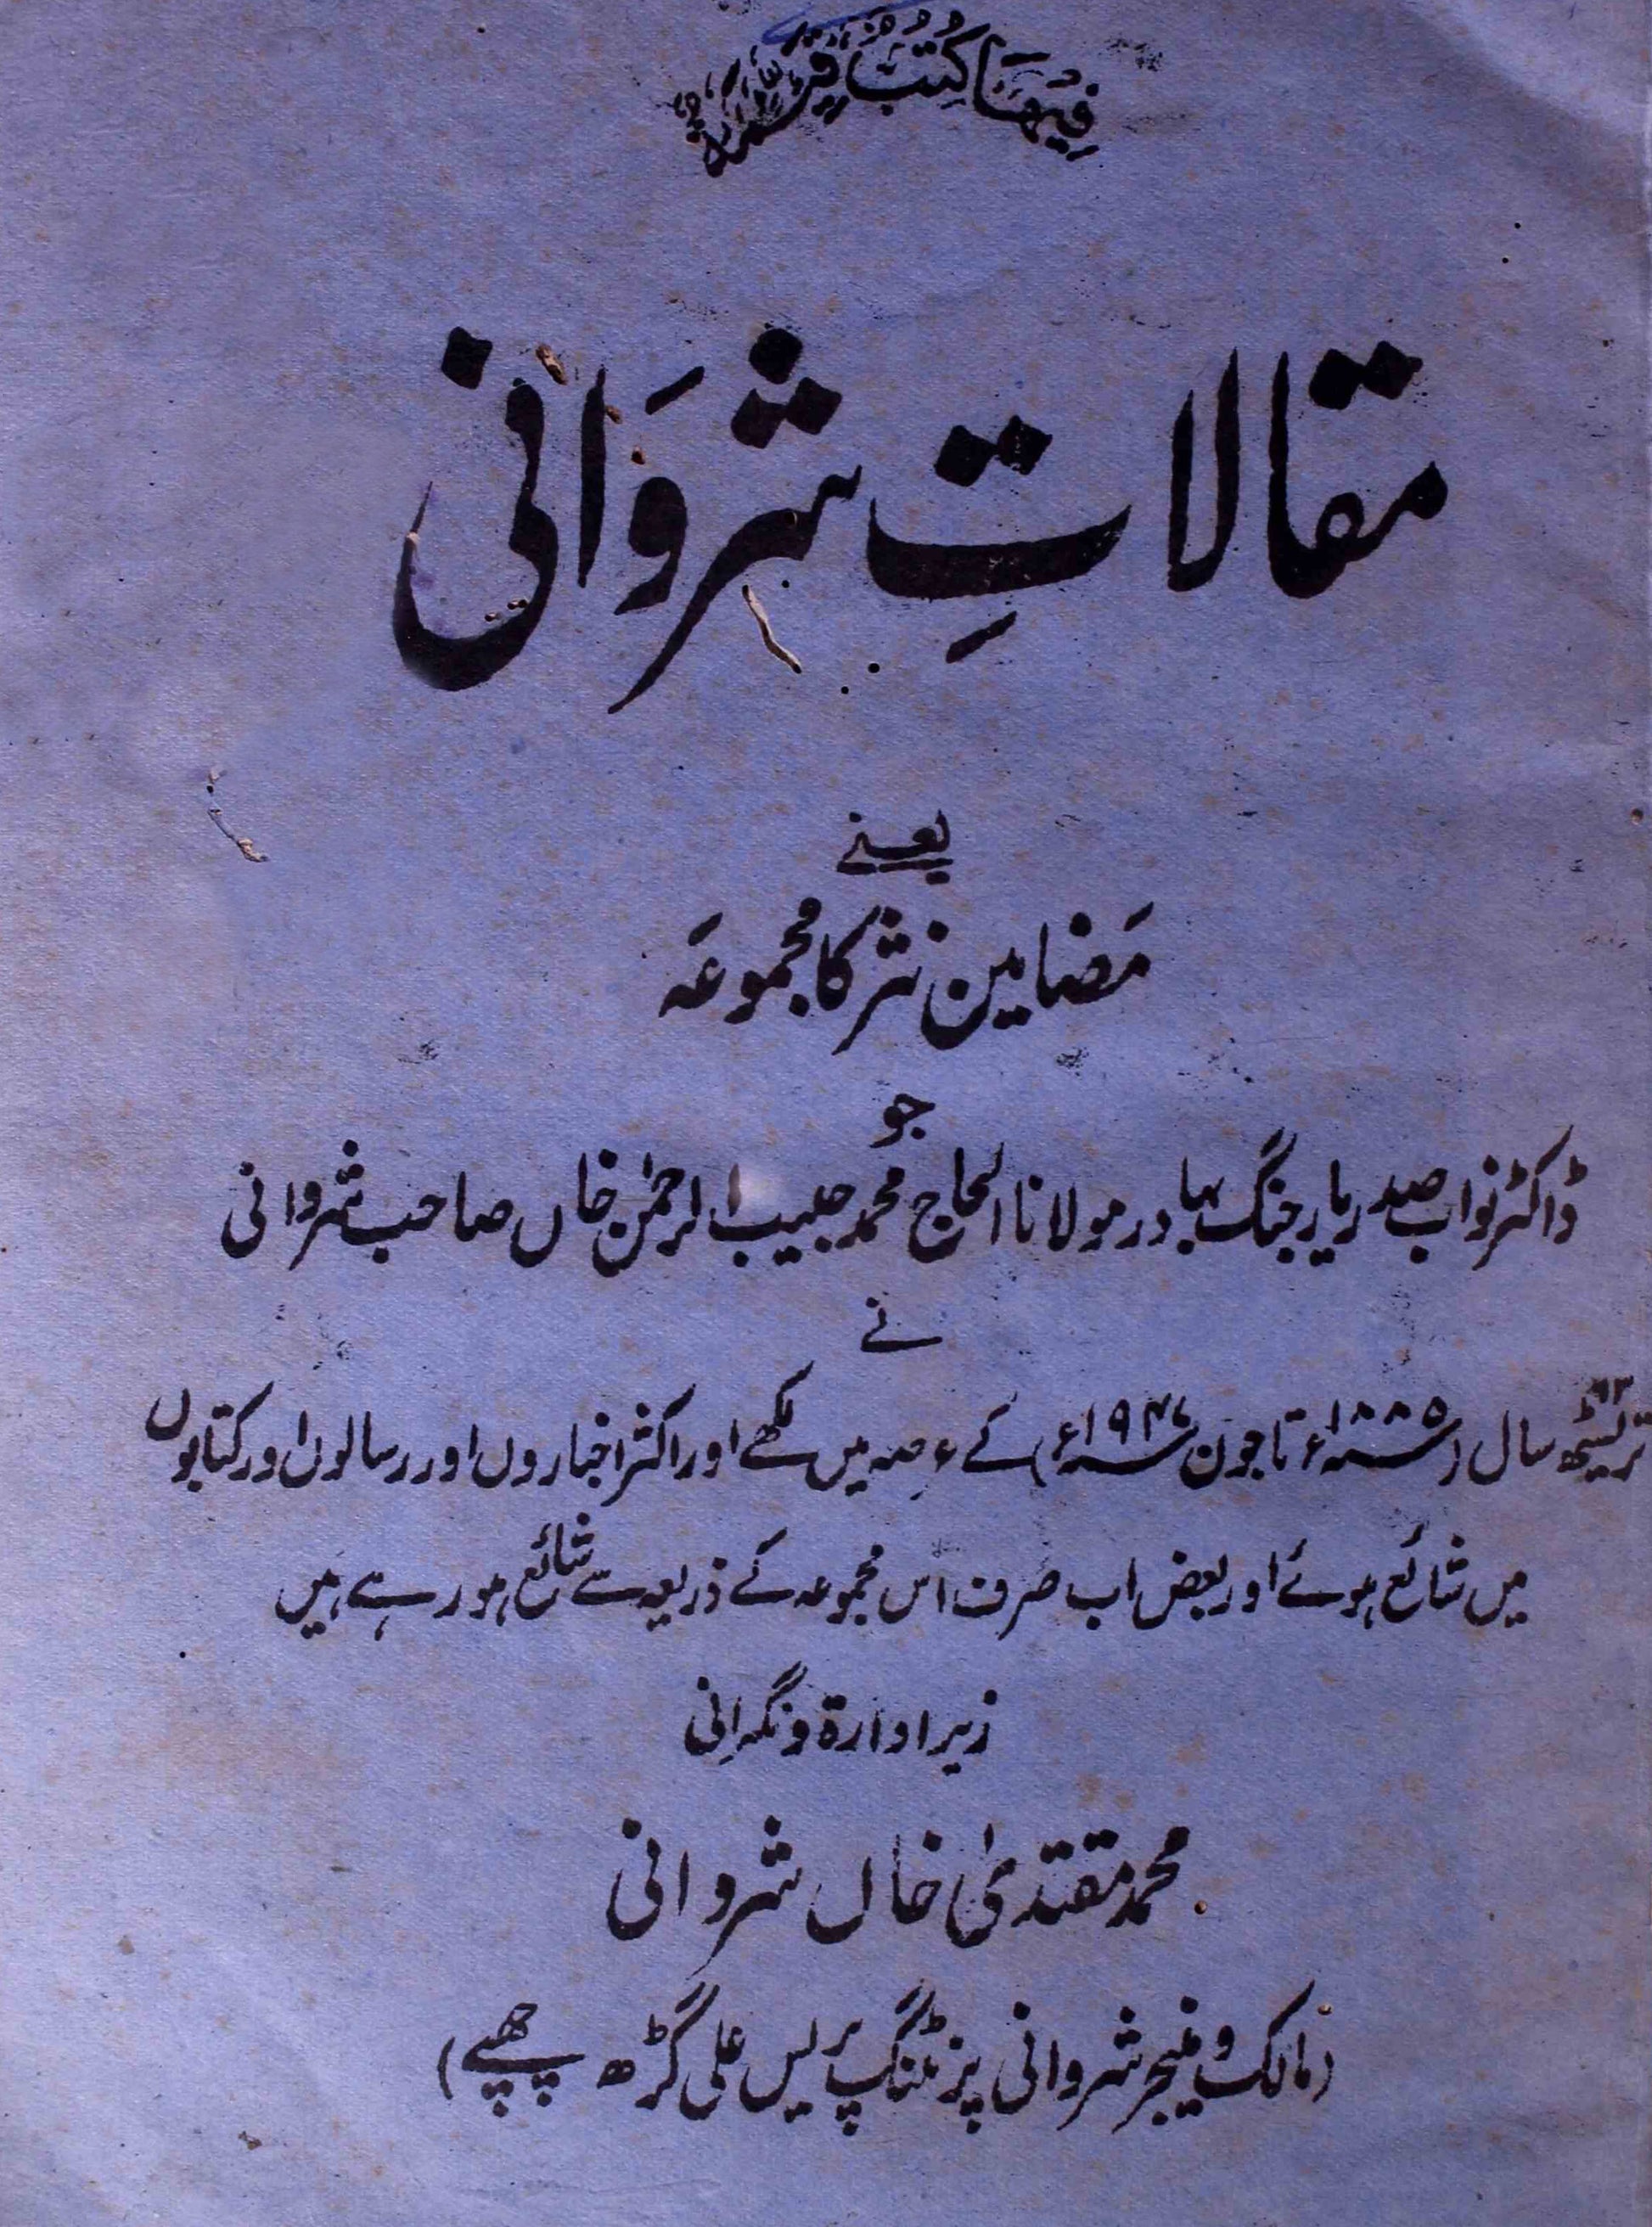 فِيْهَا كُتُبٌ قَيِّمَةٌ
مقالاتِ شروَانی
یعنے
مَضامین نثر کا مجموعَہ
جو
ڈاکٹر نواب صدر یار جنگ بہادر مولانا الحاج محمد حبیب الرحمٰن خاں صاحب شروانی
نے
۶۳
تریسٹھ سال (۱۸۸۵ء تا جون ۱۹۴۷ء) کے عرصہ میں لکھے اور اکثر اخباروں اور رسالوں اور کتابوں
میں شائع ہوئے اور بعض اب صرف اس مجموعہ کے ذریعہ سے شائع ہو رہے ہیں
زیر ادارۃ و نگرانی
محمد مقتدیٰ خاں شروانی
(مالک و منیجر شروانی پرنٹنگ پریس علی گڑھ چھپے)